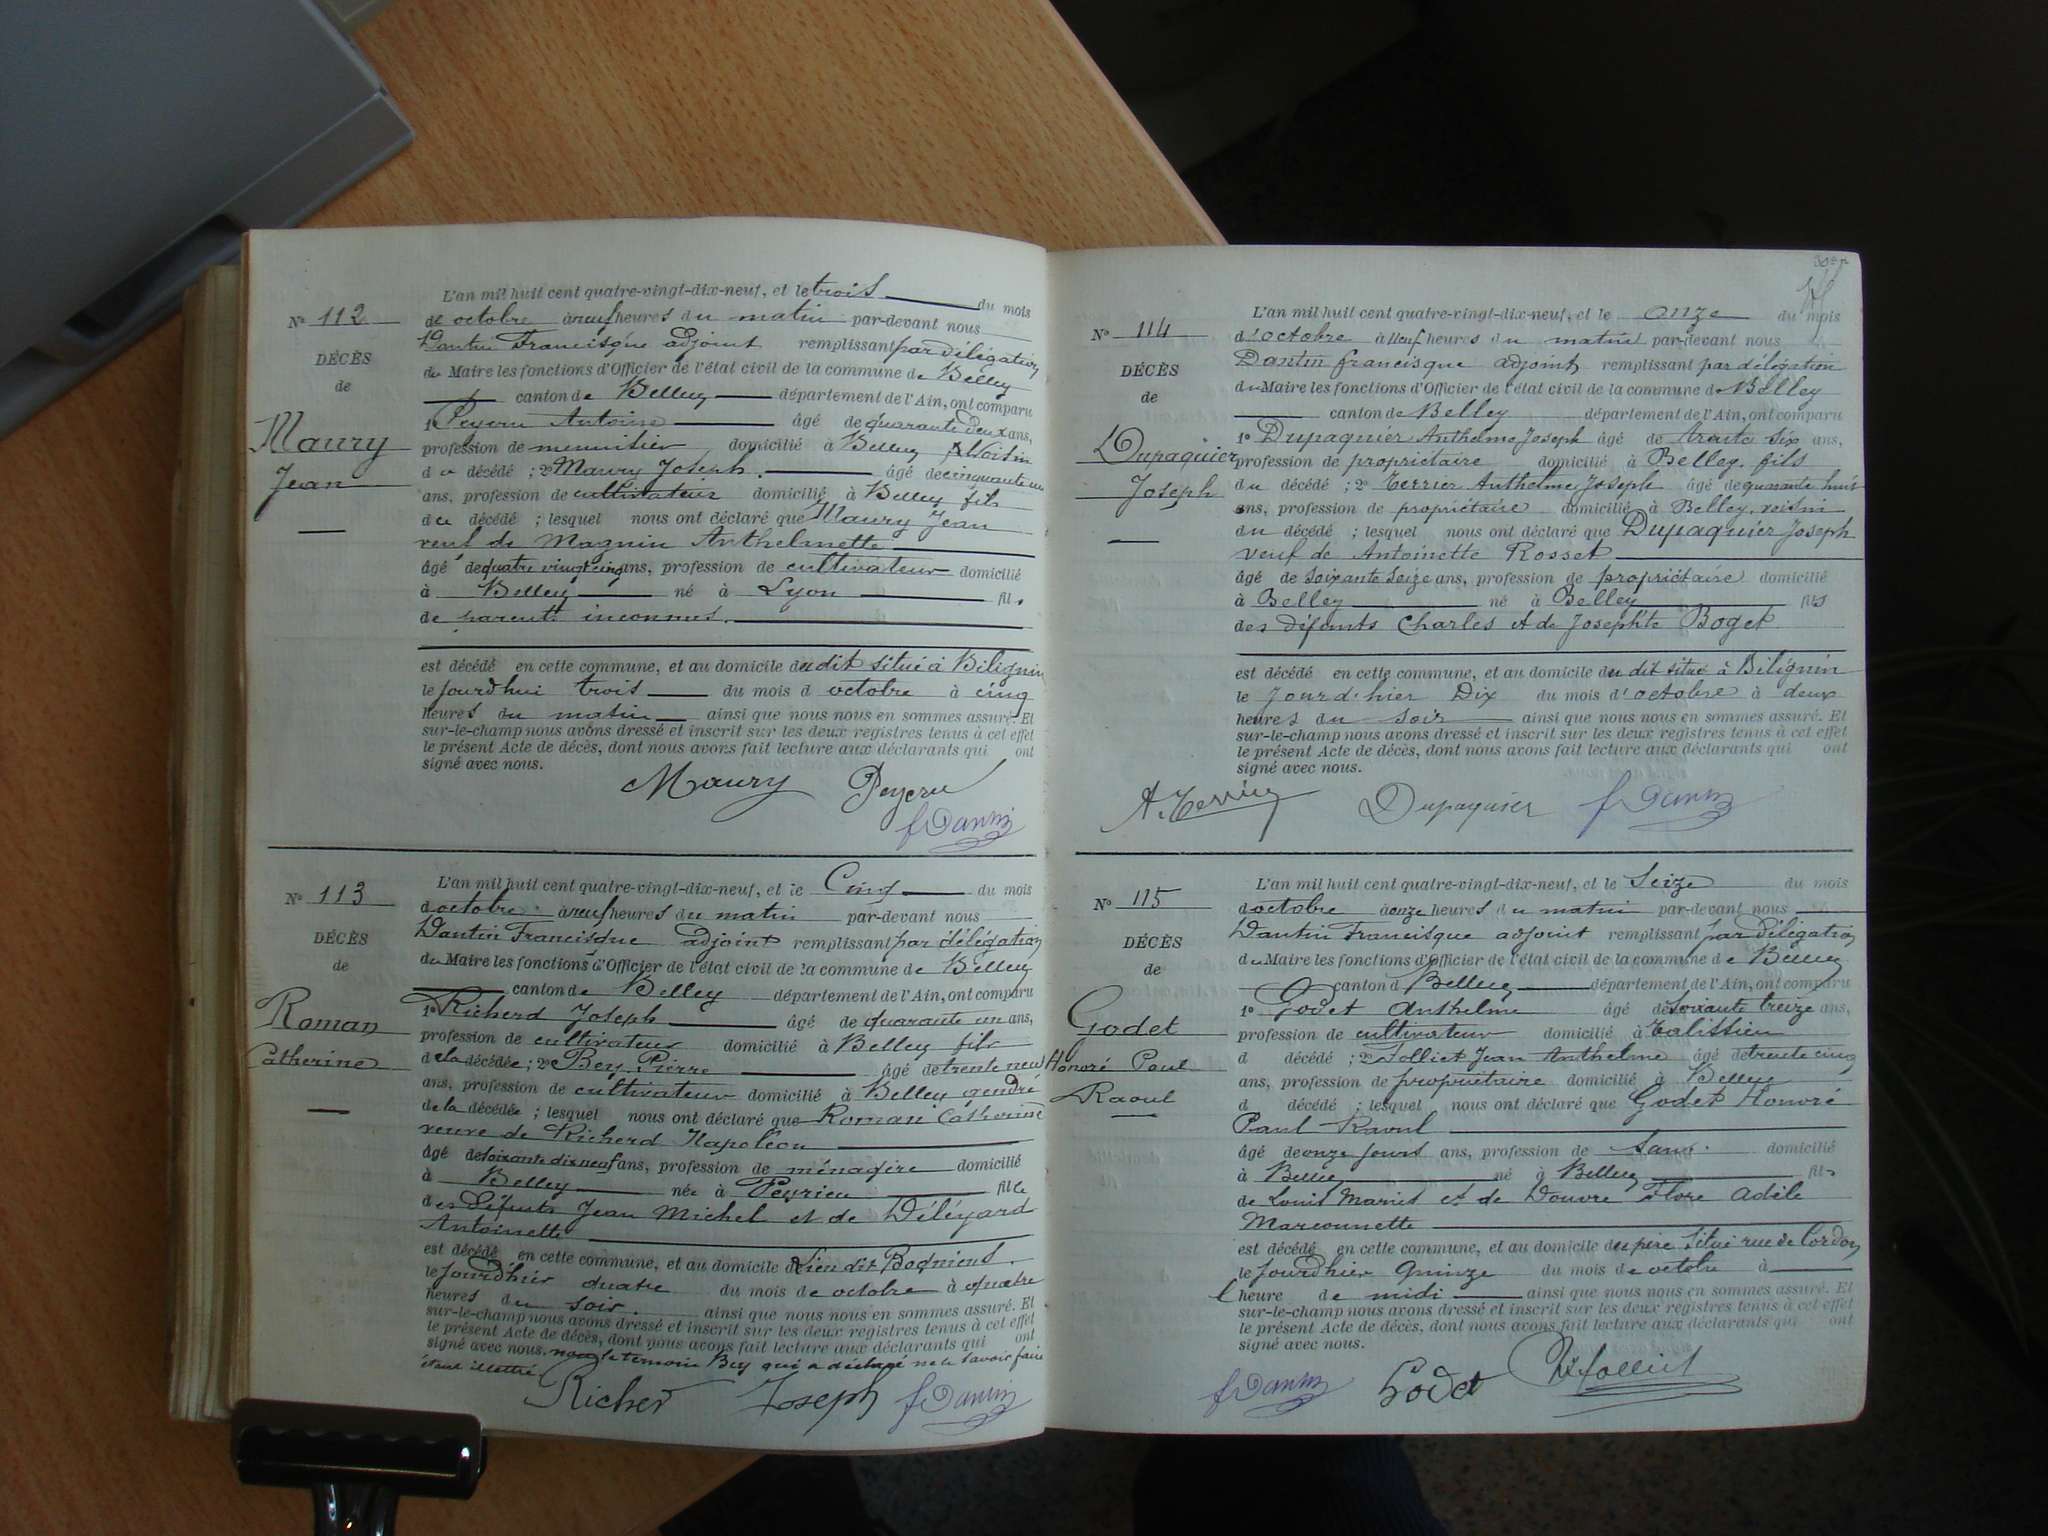 L'an mil huit cent quatre-vingt-dix-neuf, et le trois du mois
N° 112
de octobre à neuf heures du matin par-devant nous
Dantin Francisque adjoint remplissant par délégation
DÉCÈS
du Maire les fonctions d'Officier de l'état civil de la commune de Belley
de
canton de Belley département de l'Ain, ont comparu
Maury
1° Peyeru Antoine âgé de quarante deux ans,
profession de menuisier domicilié à Belley Voisin
Jean
du décédé ; 2° Maury Joseph. âgé de cinquante un
ans, profession de cultivateur domicilié à Belley fils
du décédé ; lesquel nous ont déclaré que Maury Jean
veuf de Magnin Anthelmette
âgé de quatre vingt cinq ans, profession de cultivateur domicilié
à Belley né à Lyon fils
de parents inconnus.
est décédé en cette commune, et au domicile du dit situé à Bilignin
le jourdhui trois du mois d octobre à cinq
heures du matin ainsi que nous nous en sommes assuré. Et
sur-le-champ nous avons dressé et inscrit sur les deux registres tenus à cet effet
le présent Acte de décès, dont nous avons fait lecture aux déclarants qui ont
signé avec nous.
Maury Peyeru
f Dantin
L'an mil huit cent quatre-vingt-dix-neuf, et le Cinq du mois
N° 113
d octobre à neuf heures du matin par-devant nous
Dantin Francisque adjoint remplissant par délégation
DÉCÈS
du Maire les fonctions d'Officier de l'état civil de la commune de Belley
de
canton de Belley département de l'Ain, ont comparu
Roman
1° Richerd Joseph âgé de quarante un ans,
profession de cultivateur domicilié à Belley fils
Catherine
de la décédée ; 2° Bey Pierre âgé de trente neuf
ans, profession de cultivateur domicilié à Belley gendre
de la décédée ; lesquel nous ont déclaré que Roman Catherine
veuve de Richerd Napoléon
âgé de soixante dix neuf ans, profession de ménagère domicilié
à Belley née à Peyrieu fille
des défunts Jean Michel et de Déléyard
Antoinette
est décédé en cette commune, et au domicile Lieu dit Bogniens.
le jourdhier quatre du mois de octobre à quatre
heures du soir. ainsi que nous nous en sommes assuré. Et
sur-le-champ nous avons dressé et inscrit sur les deux registres tenus à cet effet
le présent Acte de décès, dont nous avons fait lecture aux déclarants qui ont
signé avec nous. le temoin Bey qui a déclaré ne le savoir faire
étant illettré
Richer Joseph f Dantin
L'an mil huit cent quatre-vingt-dix-neuf, et le onze du mois
N° 114
d'octobre à neuf heures du matin par-devant nous
Dantin francisque adjoint remplissant par délégation
DÉCÈS
du Maire les fonctions d'Officier de l'état civil de la commune de Belley
de
canton de Belley département de l'Ain, ont comparu
Dupaquier
1° Dupaquier Anthelme Joseph âgé de trente six ans,
profession de propriétaire domicilié à Belley. fils
Joseph
du décédé ; 2° Terrier Anthelme Joseph âgé de quarante huit
ans, profession de propriétaire domicilié à Belley. voisin
du décédé ; lesquel nous ont déclaré que Dupaquier Joseph
veuf de Antoinette Rosset
âgé de soixante seize ans, profession de propriétaire domicilié
à Belley né à Belley fils
des défunts Charles et de Josephte Boget
est décédé en cette commune, et au domicile du dit situé à Bilignin
le Jourd'hier Dix du mois d'octobre à deux
heures du soir ainsi que nous nous en sommes assuré. Et
sur-le-champ nous avons dressé et inscrit sur les deux registres tenus à cet effet
le présent Acte de décès, dont nous avons fait lecture aux déclarants qui ont
signé avec nous.
A. Terrier Dupaquier f Dantin
L'an mil huit cent quatre-vingt-dix-neuf, et le Seize du mois
N° 115
d octobre à onze heures du matin par-devant nous
Dantin Francisque adjoint remplissant par délégation
DÉCÈS
du Maire les fonctions d'Officier de l'état civil de la commune de Belley
de
canton d Belley département de l'Ain, ont comparu
Godet
1° Godet Anthelme âgé de soixante treize ans,
profession de cultivateur domicilié à Talissieu
Honoré Paul
d décédé ; 2° Folliet Jean Anthelme âgé de trente cinq
ans, profession de propriétaire domicilié à Belley
Raoul
d décédé ; lesquel nous ont déclaré que Godet Honoré
Paul Raoul
âgé de onze jours ans, profession de Sans. domicilié
à Belley né à Belley fils
de Louis Marius et de Douvre Flore Adèle
Marconnette
est décédé en cette commune, et au domicile du père Situé rue de Cordon
le jourdhier Quinze du mois de octobre à
l heure de midi ainsi que nous nous en sommes assuré. Et
sur-le-champ nous avons dressé et inscrit sur les deux registres tenus à cet effet
le présent Acte de décès, dont nous avons fait lecture aux déclarants qui ont
signé avec nous.
f Dantin Godet folliet